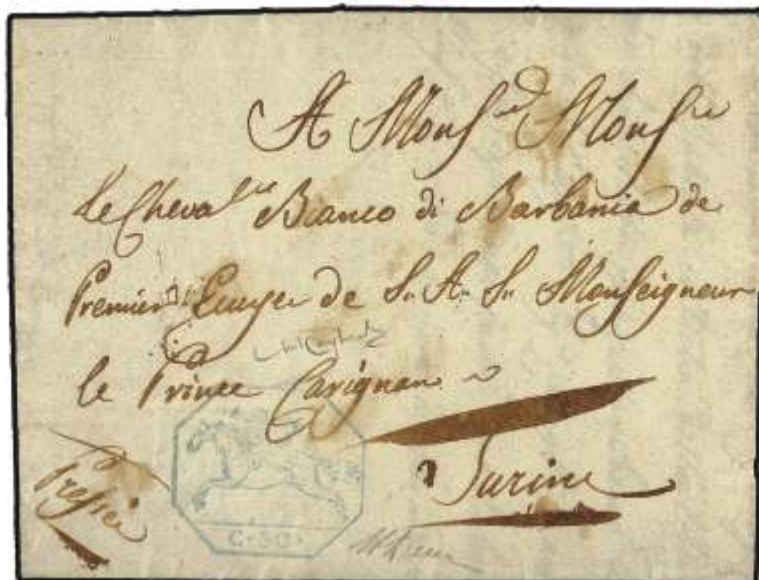 A Mons.r Mons.r
Le Cheva.lier Bianco di Barbania de
Premier Ecuyer de S. A. S. Monseigneur
le Prince Carignan
Pressée
Turin
C. 50.